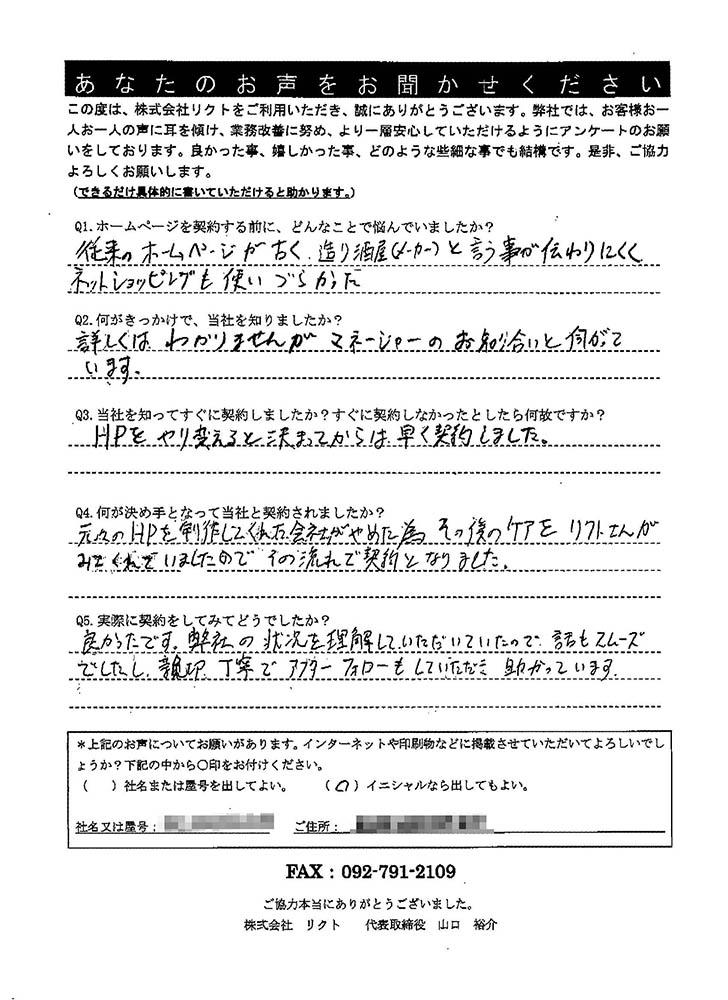 あなたのお声をお聞かせください
この度は、株式会社リクトをご利用いただき、誠にありがとうございます。弊社では、お客様お一
人お一人の声に耳を傾け、業務改善に努め、より一層安心していただけるようにアンケートのお願
いをしております。良かった事、嬉しかった事、どのような些細な事でも結構です。是非、ご協力
よろしくお願いします。
（できるだけ具体的に書いていただけると助かります。）
Q1.ホームページを契約する前に、どんなことで悩んでいましたか？
従来のホームページが古く、造り酒屋(メーカー)と言う事が伝わりにくく
ネットショッピングも使いづらかった
Q2.何がきっかけで、当社を知りましたか？
詳しくはわかりませんがマネージャーのお知り合いと伺がて
います。
Q3.当社を知ってすぐに契約しましたか？すぐに契約しなかったとしたら何故ですか？
HPをやり変えると決まってからは早く契約しました。
Q4.何が決め手となって当社と契約されましたか？
元々のHPを制作してくれた会社がやめた為、その後のケアをリクトさんが
みてくれていましたのでその流れで契約となりました。
Q5.実際に契約をしてみてどうでしたか？
良かったです。弊社の状況を理解していただいていたので、話もスムーズ
でしたし、親切、丁寧でアフターフォローもしていただき助かっています。
＊上記のお声についてお願いがあります。インターネットや印刷物などに掲載させていただいてよろしいでし
ょうか？下記の中から〇印をお付けください。
（　）社名または屋号を出してよい。　（〇）イニシャルなら出してもよい。
社名又は屋号：　ご住所：
FAX：092-791-2109
ご協力本当にありがとうございました。
株式会社　リクト　代表取締役　山口　裕介